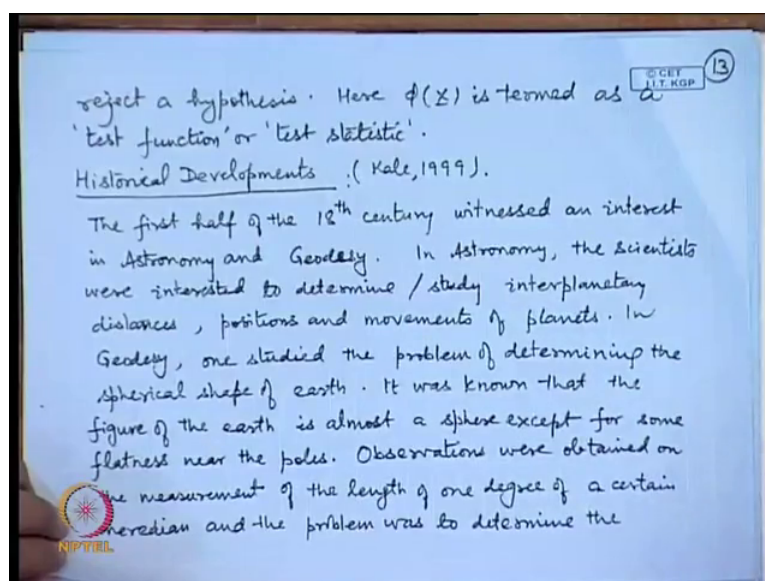 13
© CET
I.I.T. KGP
reject a hypothesis. Here ϕ(X) is termed as a
'test function' or 'test statistic'.
Historical Developments : (Kale, 1999).
The first half of the 18th century witnessed an interest
in Astronomy and Geodesy. In Astronomy, the scientists
were interested to determine / study interplanetary
distances, positions and movements of planets. In
Geodesy, one studied the problem of determining the
spherical shape of earth. It was known that the
figure of the earth is almost a sphere except for some
flatness near the poles. Observations were obtained on
the measurement of the length of one degree of a certain
meredian and the problem was to determine the
NPTEL